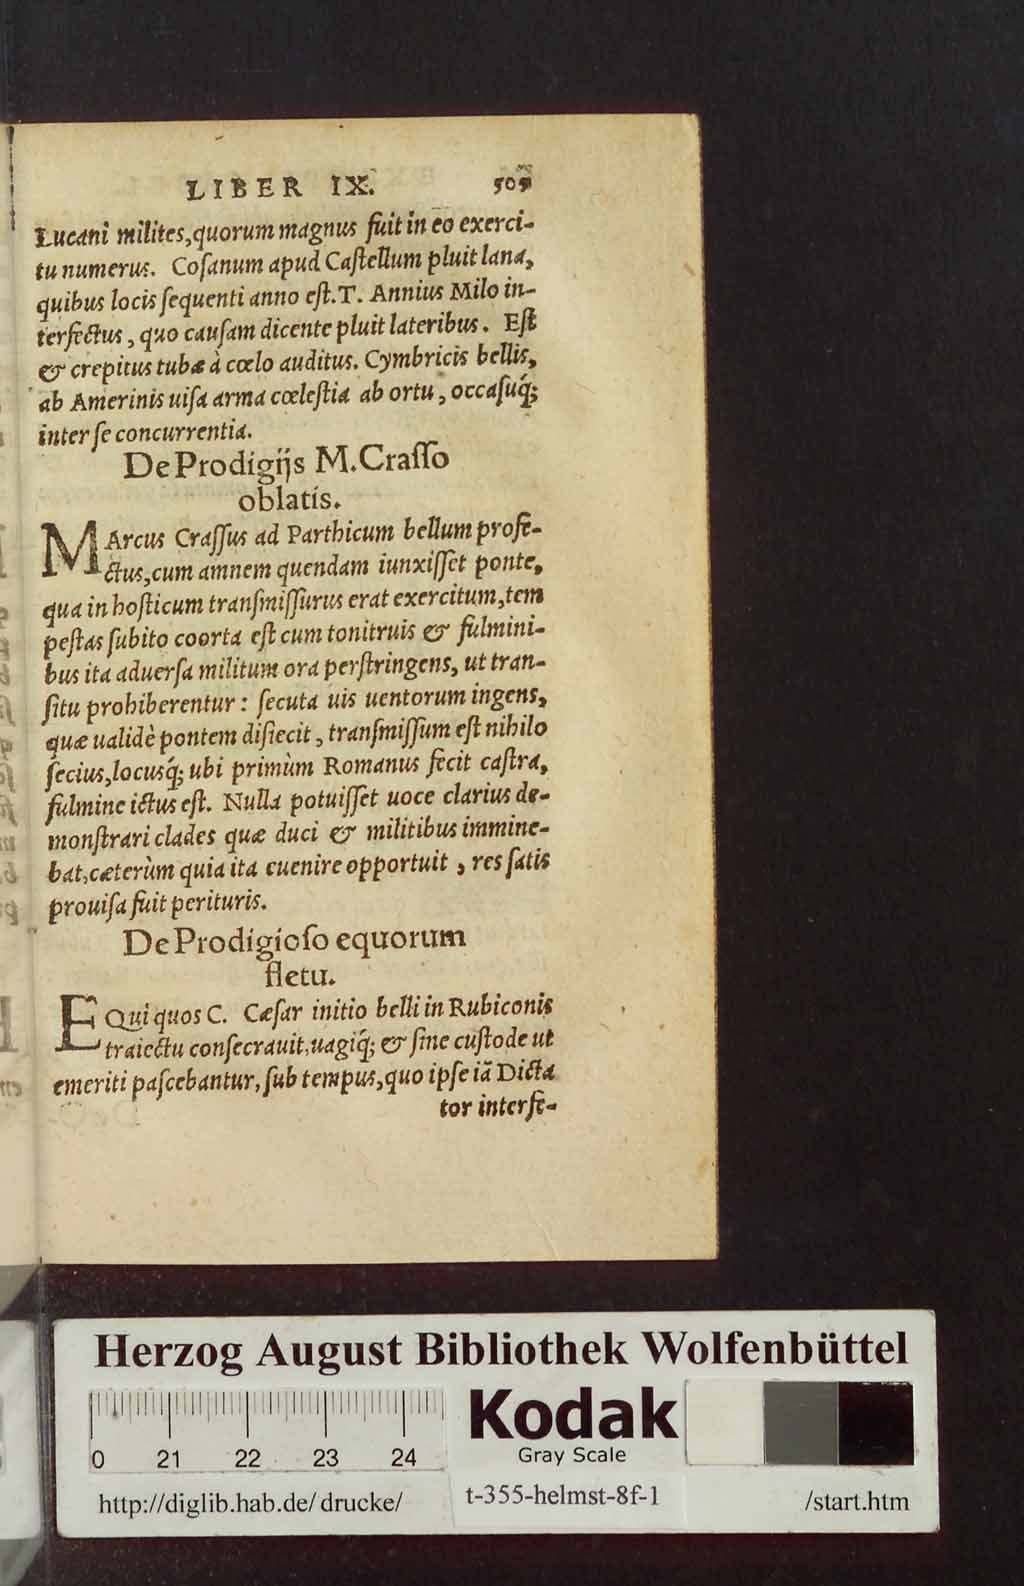 LIBER IX. 505
Lucani milites, quorum magnus fuit in eo exerci-
tu numerus. Cosanum apud Castellum pluit lana,
quibus locis sequenti anno est. T. Annius Milo in-
terfectus, quo causam dicente pluit lateribus. Est
& crepitus tubæ à cœlo auditus. Cymbricis bellis,
ab Amerinis uisa arma cœlestia ab ortu, occasuq́;
inter se concurrentia.
De Prodigijs M. Crasso
oblatis.
MArcus Crassus ad Parthicum bellum profe-
ctus, cum amnem quendam iunxisset ponte,
qua in hosticum transmissurus erat exercitum, tem
pestas subito coorta est cum tonitruis & fulmini-
bus ita aduersa militum ora perstringens, ut tran-
situ prohiberentur: secuta uis uentorum ingens,
quæ ualidè pontem disiecit, transmissum est nihilo
secius, locusq́; ubi primùm Romanus fecit castra,
fulmine ictus est. Nulla potuisset uoce clarius de-
monstrari clades quæ duci & militibus immine-
bat, cæterùm quia ita euenire opportuit, res satis
prouisa fuit perituris.
De Prodigioso equorum
fletu.
EQui quos C. Cæsar initio belli in Rubiconis
traiectu consecrauit, uagiq́; & sine custode ut
emeriti pascebantur, sub tempus, quo ipse iã Dicta
tor interfe-
Herzog August Bibliothek Wolfenbüttel
0 21 22 23 24
Kodak
Gray Scale
http://diglib.hab.de/drucke/ t-355-helmst-8f-1 /start.htm